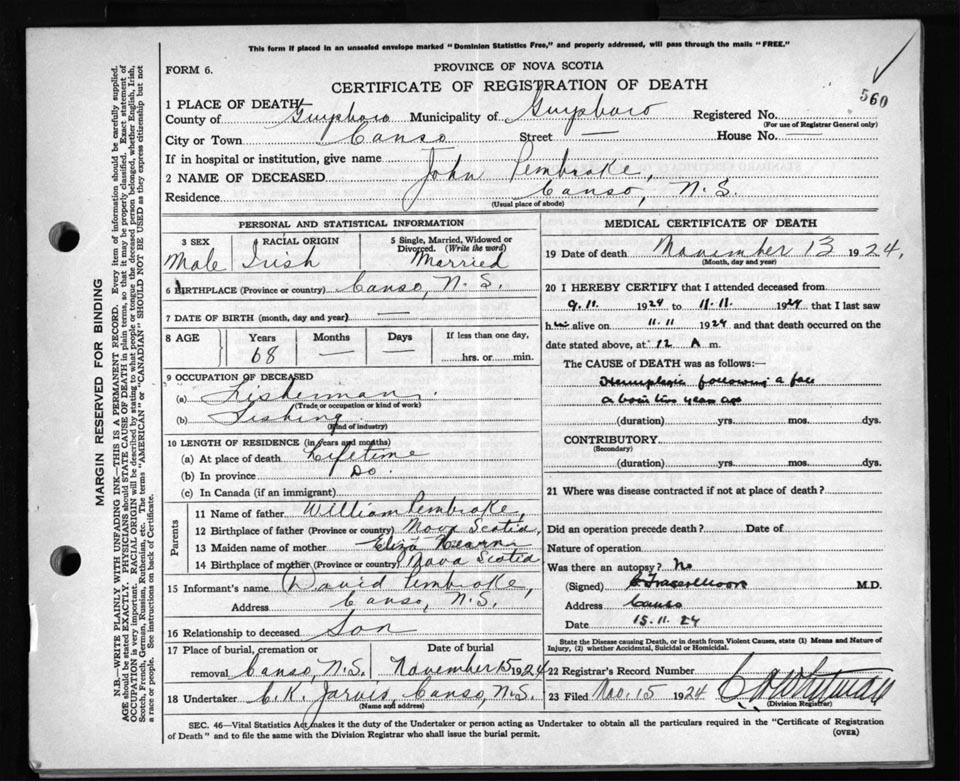 This form if placed in an unsealed envelope marked "Dominion Statistics Free," and properly addressed, will pass through the mails "FREE."
FORM 6.
PROVINCE OF NOVA SCOTIA
CERTIFICATE OF REGISTRATION OF DEATH
560
1 PLACE OF DEATH
County of Guysboro Municipality of Guysboro Registered No.
(For use of Registrar General only)
City or Town Canso Street — House No. —
If in hospital or institution, give name
2 NAME OF DECEASED John Pembroke,
Residence Canso, N.S.
(Usual place of abode)
PERSONAL AND STATISTICAL INFORMATION
3 SEX 4 RACIAL ORIGIN 5 Single, Married, Widowed or Divorced. (Write the word)
Male Irish Married
6 BIRTHPLACE (Province or country) Canso, N.S.
7 DATE OF BIRTH (month, day and year) —
8 AGE Years Months Days If less than one day,
68 — — hrs. or min.
9 OCCUPATION OF DECEASED
(a) Fisherman
(Trade or occupation or kind of work)
(b) Fishing
(Kind of industry)
10 LENGTH OF RESIDENCE (in years and months)
(a) At place of death Lifetime
(b) In province Do
(c) In Canada (if an immigrant)
Parents
11 Name of father William Pembroke,
12 Birthplace of father (Province or country) Nova Scotia,
13 Maiden name of mother Eliza Hearn
14 Birthplace of mother (Province or country) Nova Scotia
15 Informant's name David Pembroke,
Address Canso, N.S.
16 Relationship to deceased Son
17 Place of burial, cremation or Date of burial
removal Canso, N.S. November 15 1924
18 Undertaker C. K. Jarvis, Canso, N.S.
(Name and address)
MEDICAL CERTIFICATE OF DEATH
19 Date of death November 13 1924,
(Month, day and year)
20 I HEREBY CERTIFY that I attended deceased from
9.11. 1924 to 11.11. 1924 that I last saw
him alive on 11.11 1924 and that death occurred on the
date stated above, at 12 A m.
The CAUSE of DEATH was as follows:—
Hemiplegia following a
about two years ago
(duration) yrs. mos. dys.
CONTRIBUTORY
(Secondary)
(duration) yrs. mos. dys.
21 Where was disease contracted if not at place of death?
Did an operation precede death? Date of
Nature of operation
Was there an autopsy? No
(Signed) M.D.
Address Canso
Date 15.11.24
State the Disease causing Death, or in death from Violent Causes, state (1) Means and Nature of
Injury, (2) whether Accidental, Suicidal or Homicidal.
22 Registrar's Record Number
23 Filed Nov. 15 1924
(Division Registrar)
SEC. 46—Vital Statistics Act makes it the duty of the Undertaker or person acting as Undertaker to obtain all the particulars required in the "Certificate of Registration
of Death" and to file the same with the Division Registrar who shall issue the burial permit.
(OVER)
MARGIN RESERVED FOR BINDING
N.B.—WRITE PLAINLY WITH UNFADING INK—THIS IS A PERMANENT RECORD. Every item of information should be carefully supplied.
AGE should be stated EXACTLY. PHYSICIANS should STATE CAUSE OF DEATH in plain terms, so that it may be properly classified. Exact statement of
OCCUPATION is very important. RACIAL ORIGIN will be described by stating to what people or tongue the deceased person belonged, whether English, Irish,
Scotch, French, German, Russian, Ruthenian, etc. The terms "AMERICAN" or "CANADIAN" SHOULD NOT BE USED as they express citizenship but not
a race or people. See instructions on back of Certificate.